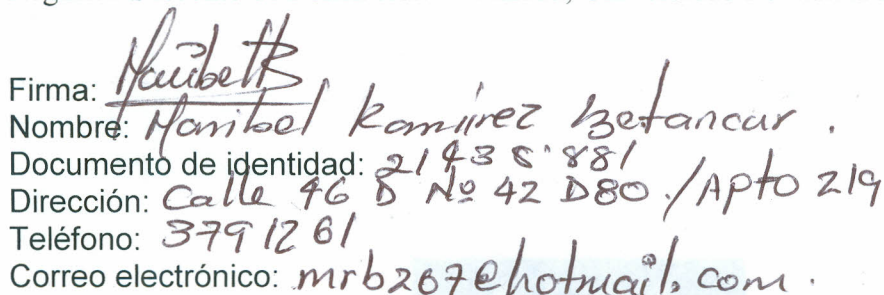 Firma: MaribelRB
Nombre: Maribel Ramirez Betancur.
Documento de identidad:
Dirección: Calle 46 D Nº 42 D80 / Apto 219
Teléfono: 3791261
Correo electrónico: mrb267@hotmail.com.